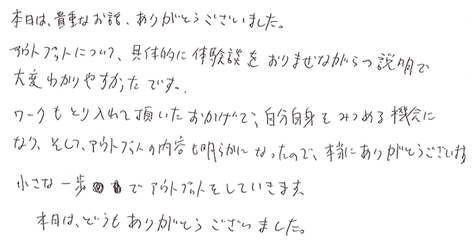 本日は、貴重なお話、ありがとうございました。
アウトプットについて、具体的に体験談をおりまぜながらの説明で
大変わかりやすかったです。
ワークもとり入れて頂いたおかげで、自分自身をみつめる機会に
なり、そして、アウトプットの内容も明らかになったので、本当にありがとうございます
小さな一歩でアウトプットをしていきます。
本日は、どうもありがとうございました。